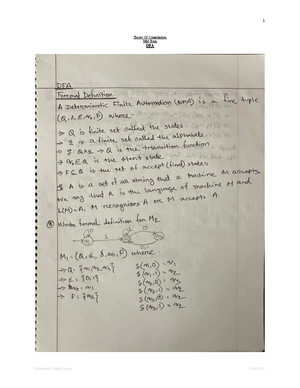 1
Theory Of Computation
DFA
DFA
Formal Definition:
A Deterministic Finite Automation (DFA) is a five tuple
(Q, Σ, δ, q₀, F) where
⇒ Q is finite set called the states
⇒ Σ is a finite set called the alphabets
⇒ δ: Q×Σ → Q is the transition function
⇒ q₀ ∈ Q is the start state
⇒ F ⊆ Q is the set of accept (final) states
If A is a set of all string that a machine M accepts
we say that A is the language of machine M and
L(M)=A, M recognises A or M accepts A.
Write formal definition for M₂
M₁ = (Q, Σ, δ, q₀, F) where
→ Q: {q₁, q₂, q₃}
→ Σ = {0,1}
→ q₀ = q₁
→ F = {q₂}
δ(q₁,0) = q₁
δ(q₁,1) = q₂
δ(q₂,1) = q₂